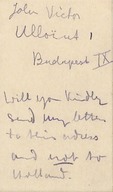 John Victor
Ullői út 1
Budapest IX
Will you kindly
send my letter
to this adress
and not to
Holland.